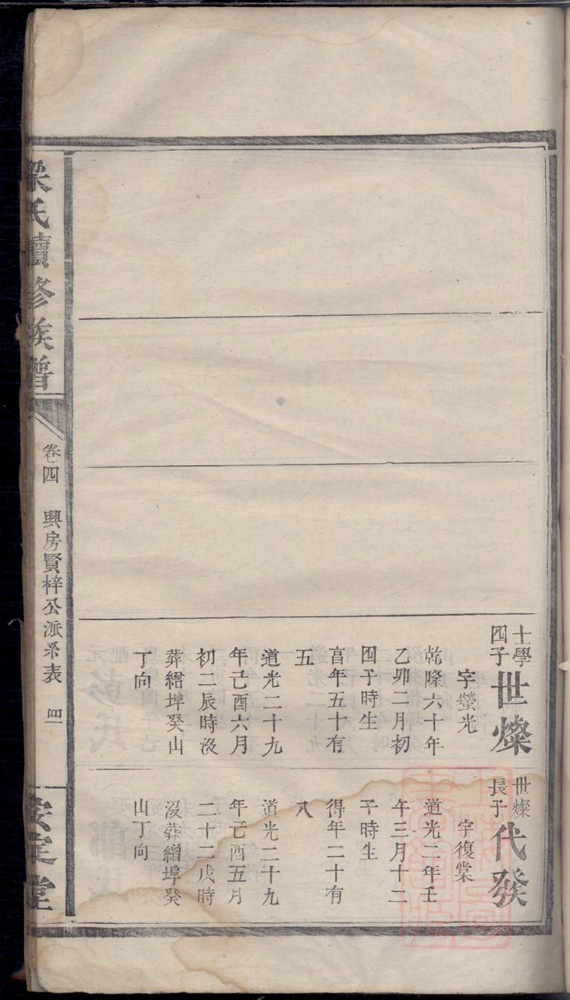 士學
四子
世燦
字螢光
乾隆六十年
乙卯二月初
四子時生
享年五十有
五
道光二十九
年己酉六月
初二辰時没
葬繒埠癸山
丁向
世燦
長子
代發
字復棠
道光二年壬
午三月十二
子時生
得年二十有
八
道光二十九
年己酉五月
二十二戌時
没葬繒埠癸
山丁向
梁氏續修族譜
卷四 興房賢梓公派系表 四一
安定堂